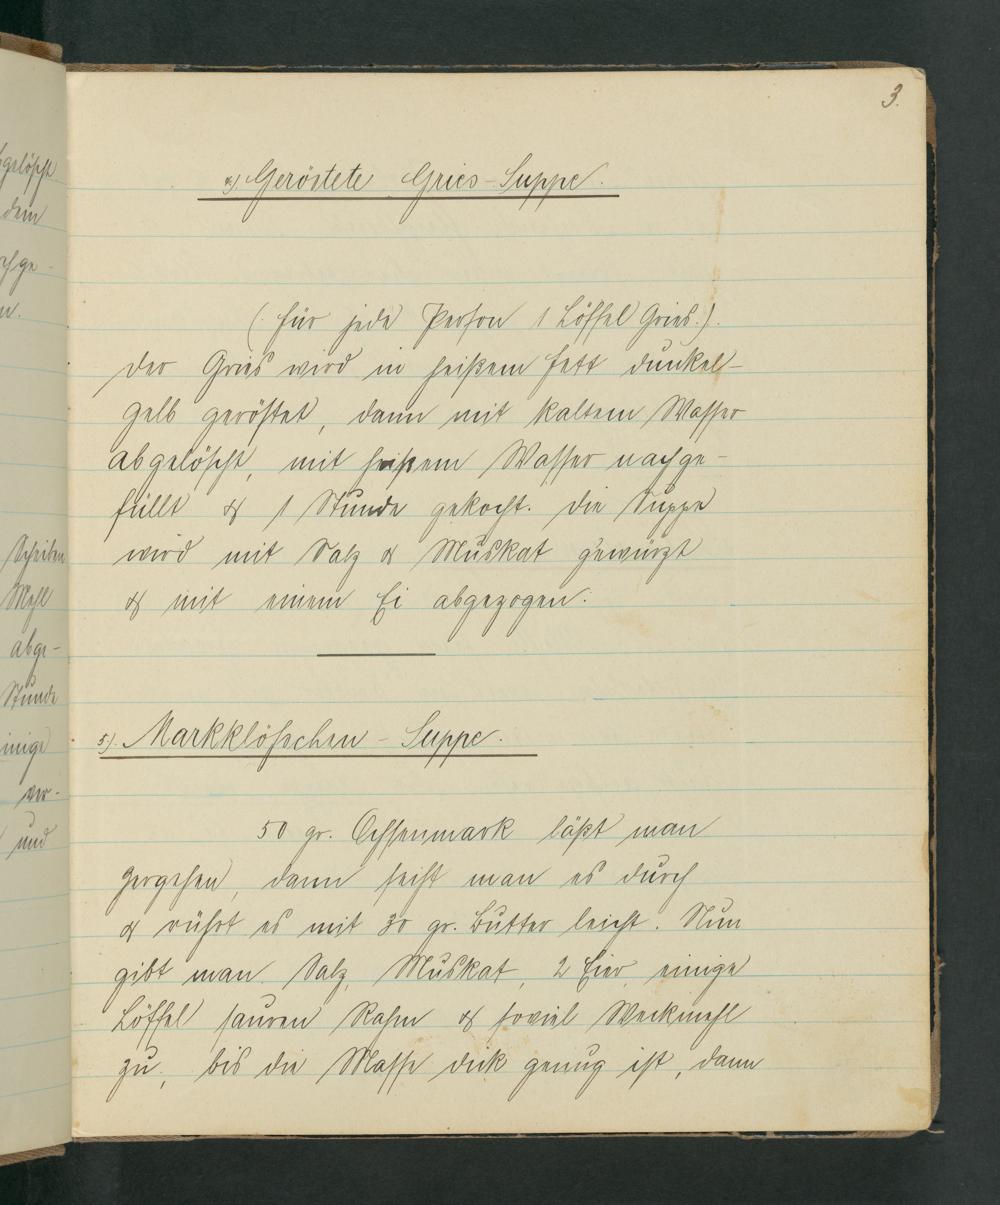 3.
4) Geröstete Gries-Suppe.
(. Für jede Person 1 Löffel Gries.).
Der Gries wird in heißem Fett dunkel-
gelb geröstet, dann mit kaltem Wasser
abgelöscht, mit heißem Wasser nachge-
füllt & 1 Stunde gekocht. Die Suppe
wird mit Salz & Muskat gewürzt
& mit einem Ei abgezogen.
5). Markklößchen-Suppe.
50 gr. Ochsenmark läßt man
zergehen, dann seiht man es durch
& rührt es mit 30 gr. Butter leicht. Nun
gibt man Salz, Muskat, 2 Eier, einige
Löffel sauren Rahm & soviel Weckmehl
zu, bis die Masse dick genug ist, dann
gelöscht
dem
chge-
n.
Scheiben
Mehl
abge-
Stunde
einige
ver-
und